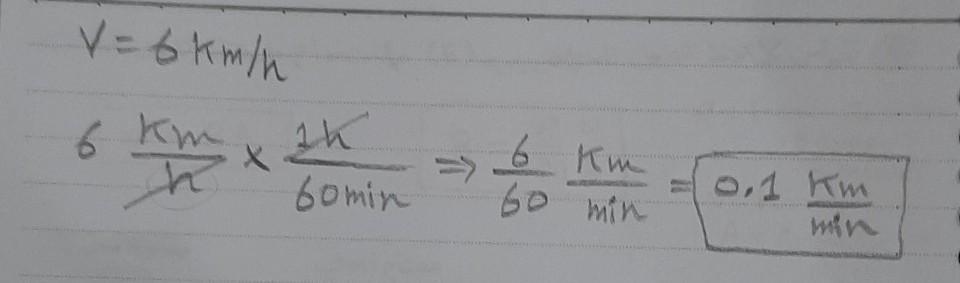 V = 6 Km/h
6 Km/h × 1h/60min ⇒ 6/60 Km/min = 0.1 Km/min